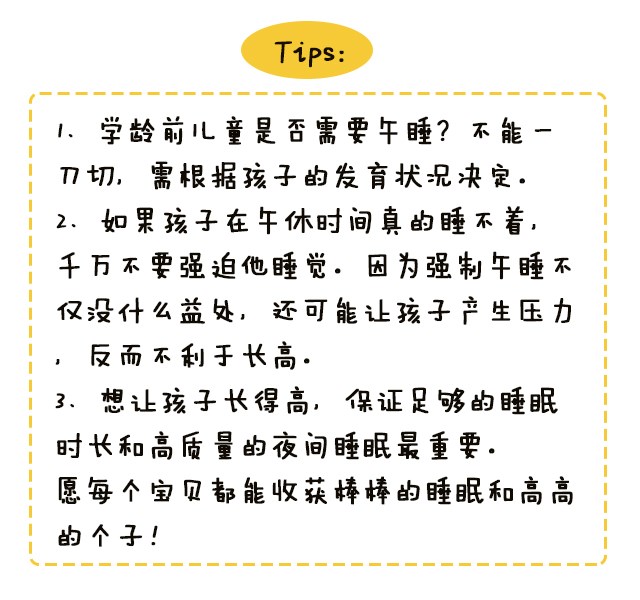 Tips:
1、学龄前儿童是否需要午睡？不能一
刀切，需根据孩子的发育状况决定。
2、如果孩子在午休时间真的睡不着，
千万不要强迫他睡觉。因为强制午睡不
仅没什么益处，还可能让孩子产生压力
，反而不利于长高。
3、想让孩子长得高，保证足够的睡眠
时长和高质量的夜间睡眠最重要。
愿每个宝贝都能收获棒棒的睡眠和高高
的个子！